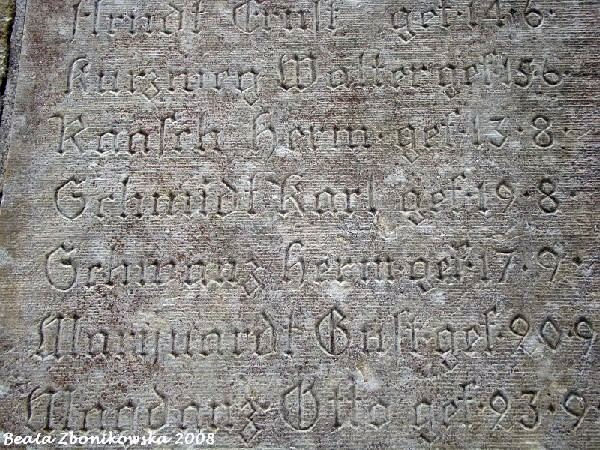 Arndt Ernst gef. 14.6.
Kurzweg Walter gef. 15 6.
Raasch Herm. gef. 13.8.
Schmidt Karl gef. 19.8.
Schwanz Herm. gef. 17.9.
Marquardt Gust. gef. 20.9.
Magdanz Otto gef. 23.9.
Beata Zbonikowska 2008